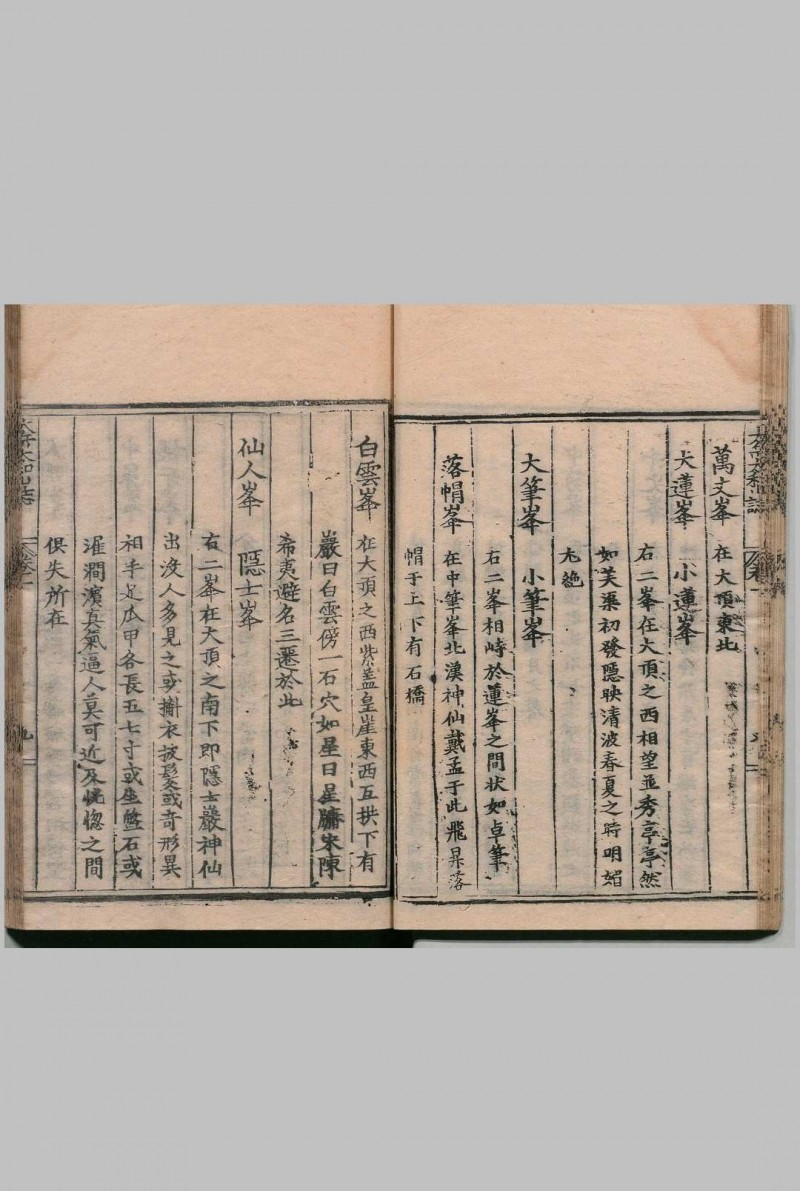 萬丈峯 在大頂東北
大蓮峯 小蓮峯
右二峯在大頂之西相望並秀亭亭然
如芙渠初發隱映清波春夏之時明媚
尤絶
大筆峯 小筆峯
右二峯相峙於蓮峯之間狀如卓筆
落帽峯 在中筆峯北漢神仙戴孟于此飛昇落
帽于上下有石橋
白雲峯 在大頂之西紫盖皇崖東西五拱下有
巖曰白雲傍一石穴如星日星牖宋陳
希夷避名三遷於此
仙人峯 隱士峯
右二峯在大頂之南下即隱士巖神仙
出没人多見之或擕衣披髮或奇形異
相手足瓜甲各長五七寸或坐盤石或
濯澗濱真氣逼人莫可近及恍惚之間
俱失所在